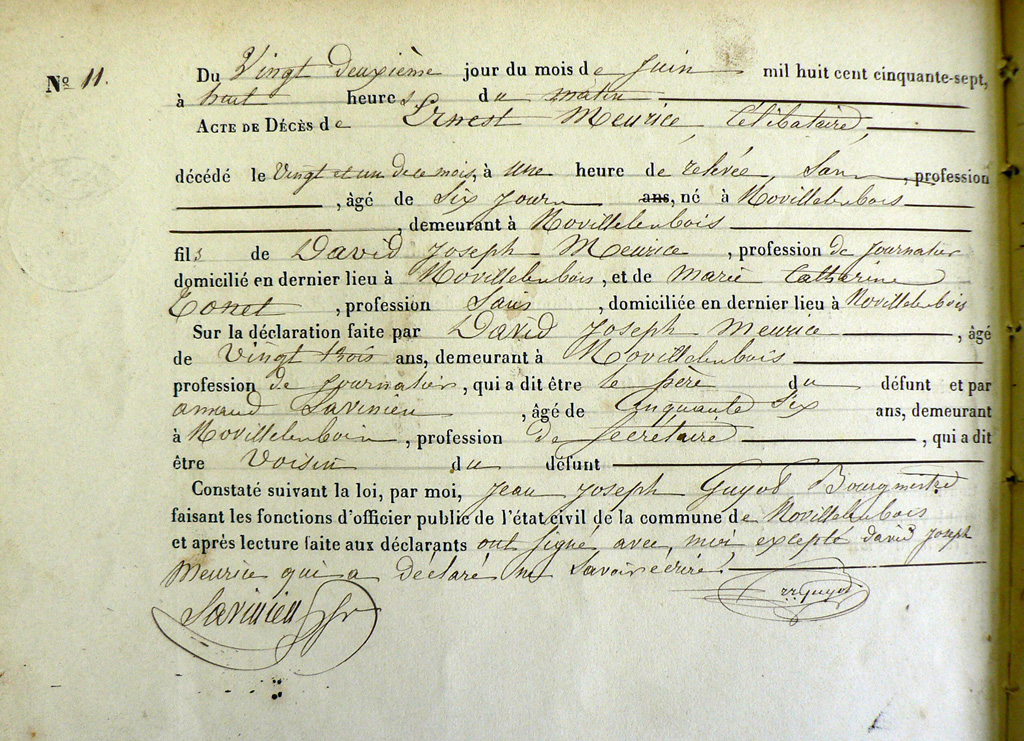 No 11.
Du Vingt deuxième jour du mois de Juin mil huit cent cinquante-sept,
à huit heures du matin
ACTE DE DÉCÈS de Ernest Meurice, Célibataire,
décédé le Vingt et un de ce mois, à une heure de relevée, San , profession
, âgé de Six Jours ans, né à Novillelenbois
, demeurant à Novillelenbois
fils de David Joseph Meurice , profession de journalier
domicilié en dernier lieu à Novillelenbois , et de Marie Catherine
Tonet , profession Sans , domiciliée en dernier lieu à Novillelenbois
Sur la déclaration faite par David Joseph Meurice , âgé
de Vingt trois ans, demeurant à Novillelenbois
profession de journalier, qui a dit être le père du défunt et par
armand Savinien , âgé de Cinquante Six ans, demeurant
à Novillelenbois , profession de Secrétaire , qui a dit
être Voisin du défunt
Constaté suivant la loi, par moi, Jean Joseph Guyot Bourgmestre
faisant les fonctions d'officier public de l'état civil de la commune de Novillelenbois
et après lecture faite aux déclarants ont signé avec moi excepté david joseph
Meurice qui a déclaré ne savoir écrire.
Savinien
Guyot